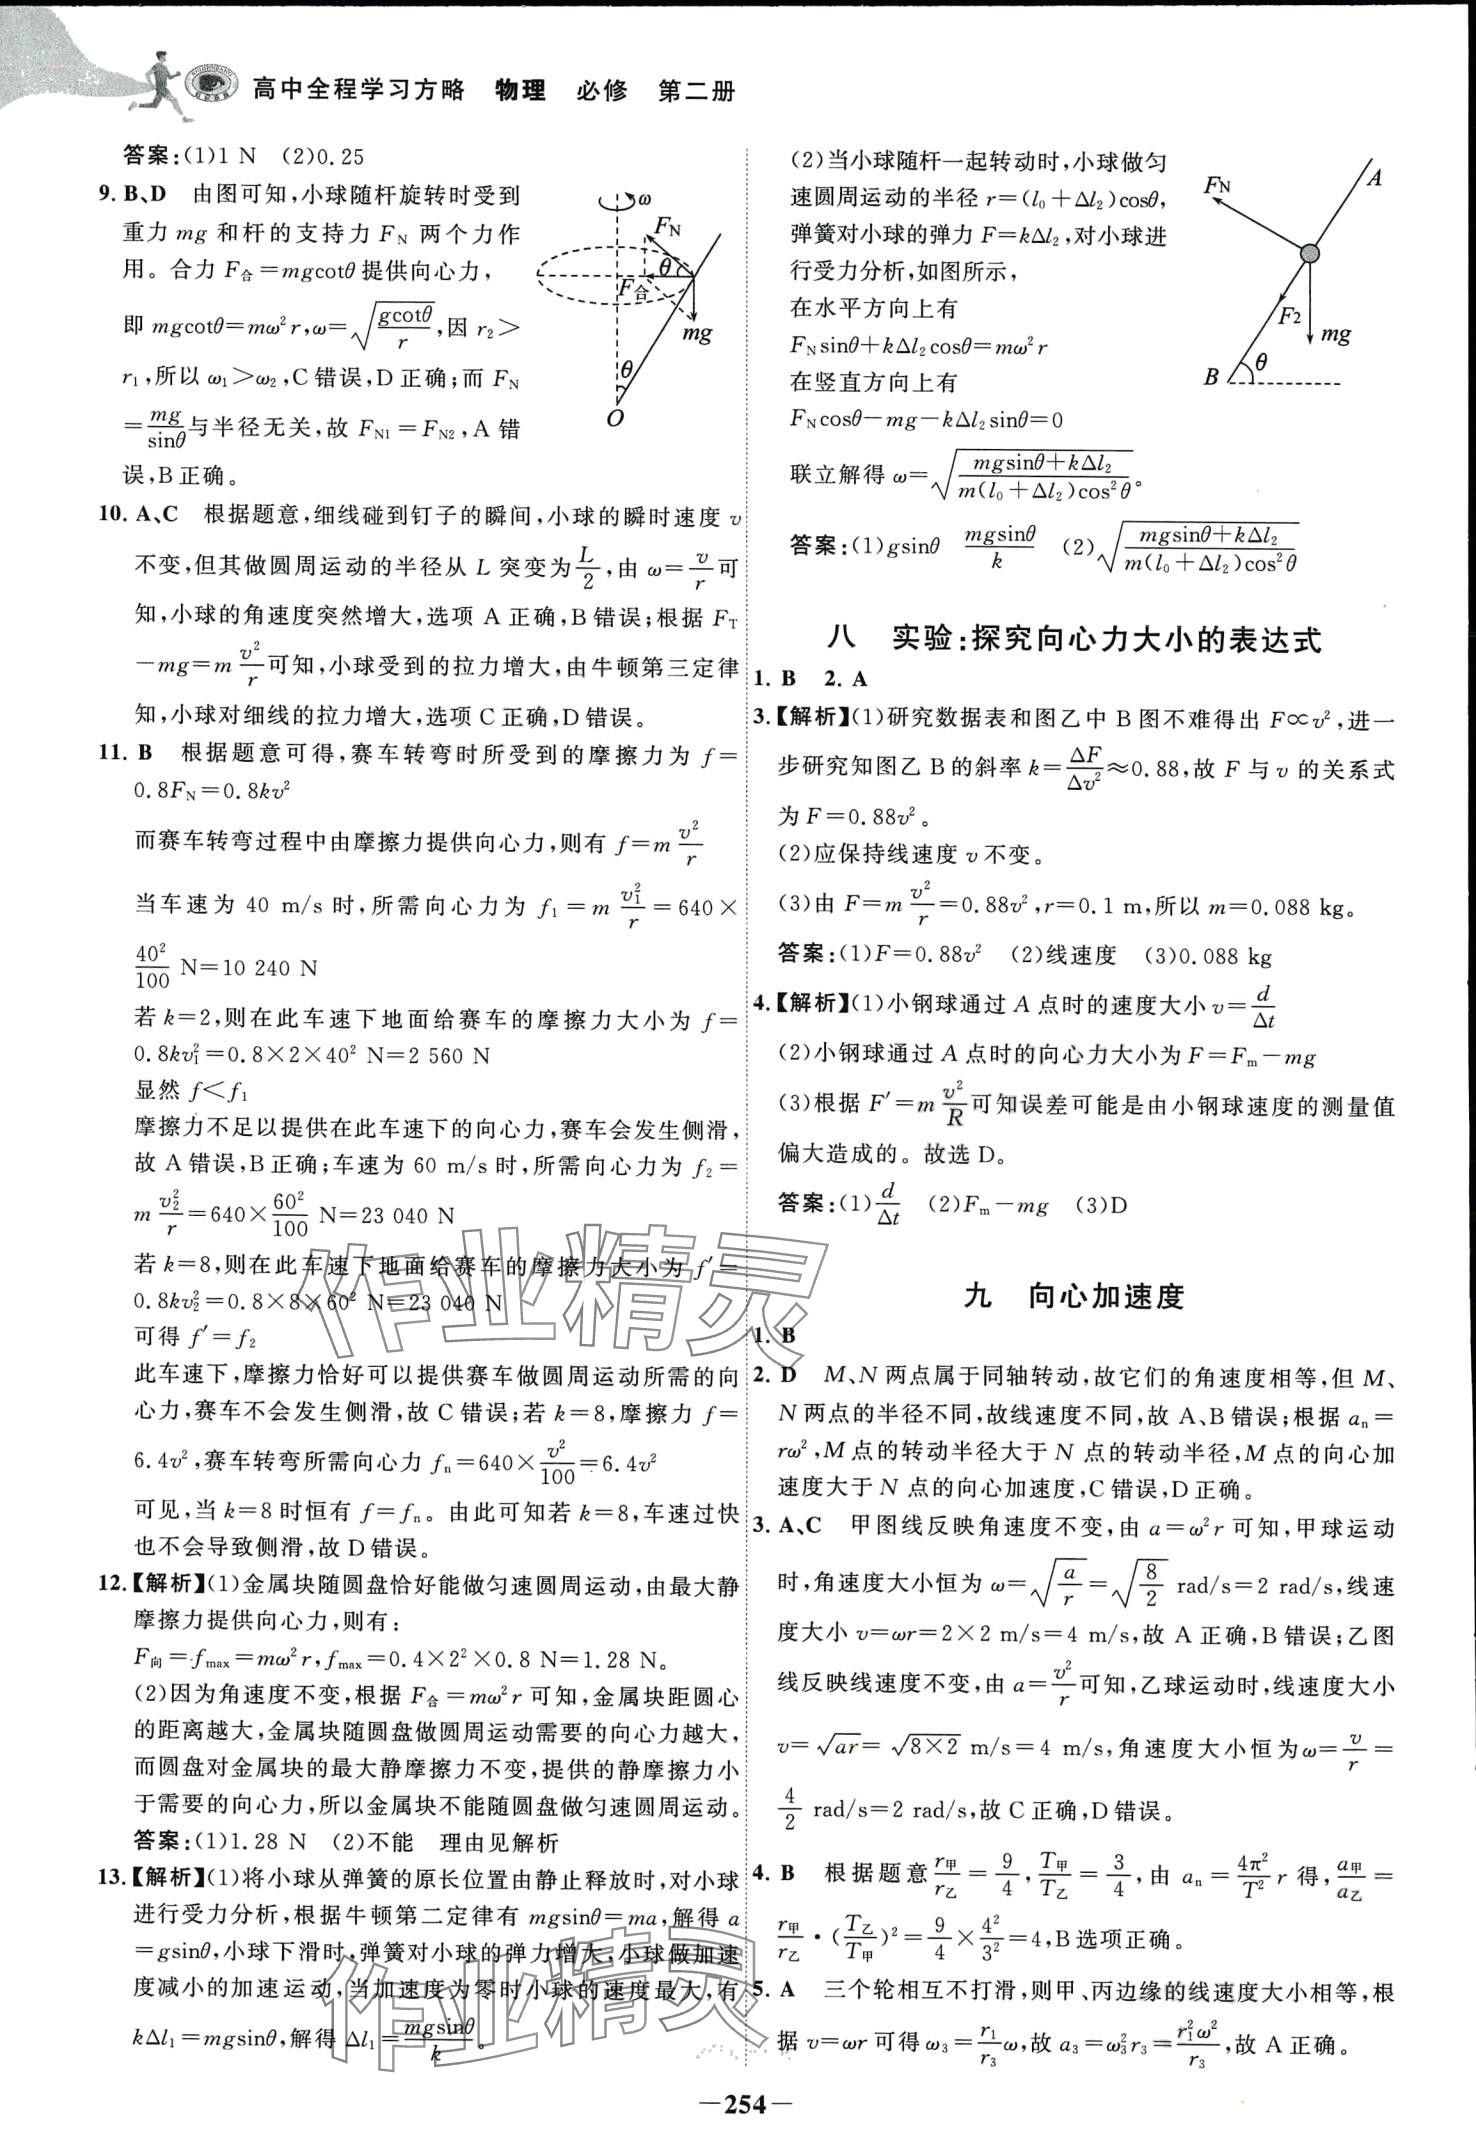 高中全程学习方略 物理 必修 第二册
答案:(1)1 N (2)0.25
9. B、D 由图可知,小球随杆旋转时受到
重力 mg 和杆的支持力 F_N 两个力作
用。合力 F_合=mgcotθ提供向心力,
即 mgcotθ=mω²r,ω=√(gcotθ/r),因 r₂>
r₁,所以 ω₁>ω₂,C错误,D正确;而 F_N
=mg/sinθ与半径无关,故 F_N1=F_N2,A 错
误,B正确。
ω
F_N
θ
F_合
mg
θ
O
10. A、C 根据题意,细线碰到钉子的瞬间,小球的瞬时速度 v
不变,但其做圆周运动的半径从 L 突变为L/2,由 ω=v/r可
知,小球的角速度突然增大,选项 A 正确,B错误;根据 F_T
-mg=m v²/r可知,小球受到的拉力增大,由牛顿第三定律
知,小球对细线的拉力增大,选项C正确,D错误。
11. B 根据题意可得,赛车转弯时所受到的摩擦力为 f=
0.8F_N=0.8kv²
而赛车转弯过程中由摩擦力提供向心力,则有 f=m v²/r
当车速为 40 m/s 时,所需向心力为 f₁=m v₁²/r=640×
40²/100 N=10 240 N
若 k=2,则在此车速下地面给赛车的摩擦力大小为 f=
0.8kv₁²=0.8×2×40² N=2 560 N
显然 f<f₁
摩擦力不足以提供在此车速下的向心力,赛车会发生侧滑,
故 A 错误,B正确;车速为 60 m/s 时,所需向心力为 f₂=
m v₂²/r=640×60²/100 N=23 040 N
若 k=8,则在此车速下地面给赛车的摩擦力大小为 f′=
0.8kv₂²=0.8×8×60² N=23 040 N
可得 f′=f₂
此车速下,摩擦力恰好可以提供赛车做圆周运动所需的向
心力,赛车不会发生侧滑,故C错误;若 k=8,摩擦力 f=
6.4v²,赛车转弯所需向心力 f_n=640×v²/100=6.4v²
可见,当 k=8 时恒有 f=f_n。由此可知若 k=8,车速过快
也不会导致侧滑,故D错误。
12.【解析】(1)金属块随圆盘恰好能做匀速圆周运动,由最大静
摩擦力提供向心力,则有:
F_向=f_max=mω²r,f_max=0.4×2²×0.8 N=1.28 N。
(2)因为角速度不变,根据 F_合=mω²r 可知,金属块距圆心
的距离越大,金属块随圆盘做圆周运动需要的向心力越大,
而圆盘对金属块的最大静摩擦力不变,提供的静摩擦力小
于需要的向心力,所以金属块不能随圆盘做匀速圆周运动。
答案:(1)1.28 N (2)不能 理由见解析
13.【解析】(1)将小球从弹簧的原长位置由静止释放时,对小球
进行受力分析,根据牛顿第二定律有 mgsinθ=ma,解得 a
=gsinθ,小球下滑时,弹簧对小球的弹力增大,小球做加速
度减小的加速运动,当加速度为零时小球的速度最大,有
kΔl₁=mgsinθ,解得 Δl₁=mgsinθ/k。
(2)当小球随杆一起转动时,小球做匀
速圆周运动的半径 r=(l₀+Δl₂)cosθ,
弹簧对小球的弹力 F=kΔl₂,对小球进
行受力分析,如图所示,
在水平方向上有
F_N sinθ+kΔl₂cosθ=mω²r
在竖直方向上有
F_N cosθ-mg-kΔl₂sinθ=0
联立解得 ω=√((mgsinθ+kΔl₂)/(m(l₀+Δl₂)cos²θ))。
A
F_N
F₂
mg
B
θ
答案:(1)gsinθ mgsinθ/k (2)√((mgsinθ+kΔl₂)/(m(l₀+Δl₂)cos²θ))
八 实验:探究向心力大小的表达式
1. B 2. A
3.【解析】(1)研究数据表和图乙中 B 图不难得出 F∝v²,进一
步研究知图乙 B 的斜率 k=ΔF/Δv²≈0.88,故 F 与 v 的关系式
为 F=0.88v²。
(2)应保持线速度 v 不变。
(3)由 F=m v²/r=0.88v²,r=0.1 m,所以 m=0.088 kg。
答案:(1)F=0.88v² (2)线速度 (3)0.088 kg
4.【解析】(1)小钢球通过 A 点时的速度大小 v=d/Δt
(2)小钢球通过 A 点时的向心力大小为 F=F_m-mg
(3)根据 F′=m v²/R可知误差可能是由小钢球速度的测量值
偏大造成的。故选 D。
答案:(1)d/Δt (2)F_m-mg (3)D
九 向心加速度
1. B
2. D M、N 两点属于同轴转动,故它们的角速度相等,但 M、
N 两点的半径不同,故线速度不同,故 A、B 错误;根据 a_n=
rω²,M 点的转动半径大于 N 点的转动半径,M 点的向心加
速度大于 N 点的向心加速度,C错误,D正确。
3. A、C 甲图线反映角速度不变,由 a=ω²r 可知,甲球运动
时,角速度大小恒为 ω=√(a/r)=√(8/2) rad/s=2 rad/s,线速
度大小 v=ωr=2×2 m/s=4 m/s,故 A 正确,B错误;乙图
线反映线速度不变,由 a=v²/r可知,乙球运动时,线速度大小
v=√(ar)=√(8×2) m/s=4 m/s,角速度大小恒为ω=v/r=
4/2 rad/s=2 rad/s,故C正确,D错误。
4. B 根据题意r_甲/r_乙=9/4,T_甲/T_乙=3/4,由 a_n=4π²/T² r 得,a_甲/a_乙=
r_甲/r_乙·(T_乙/T_甲)²=9/4×4²/3²=4,B选项正确。
5. A 三个轮相互不打滑,则甲、丙边缘的线速度大小相等,根
据 v=ωr 可得 ω₃=r₁/r₃ω,故 a₃=ω₃²r₃=r₁²ω²/r₃,故 A 正确。
作业精灵
作业精灵
—254—